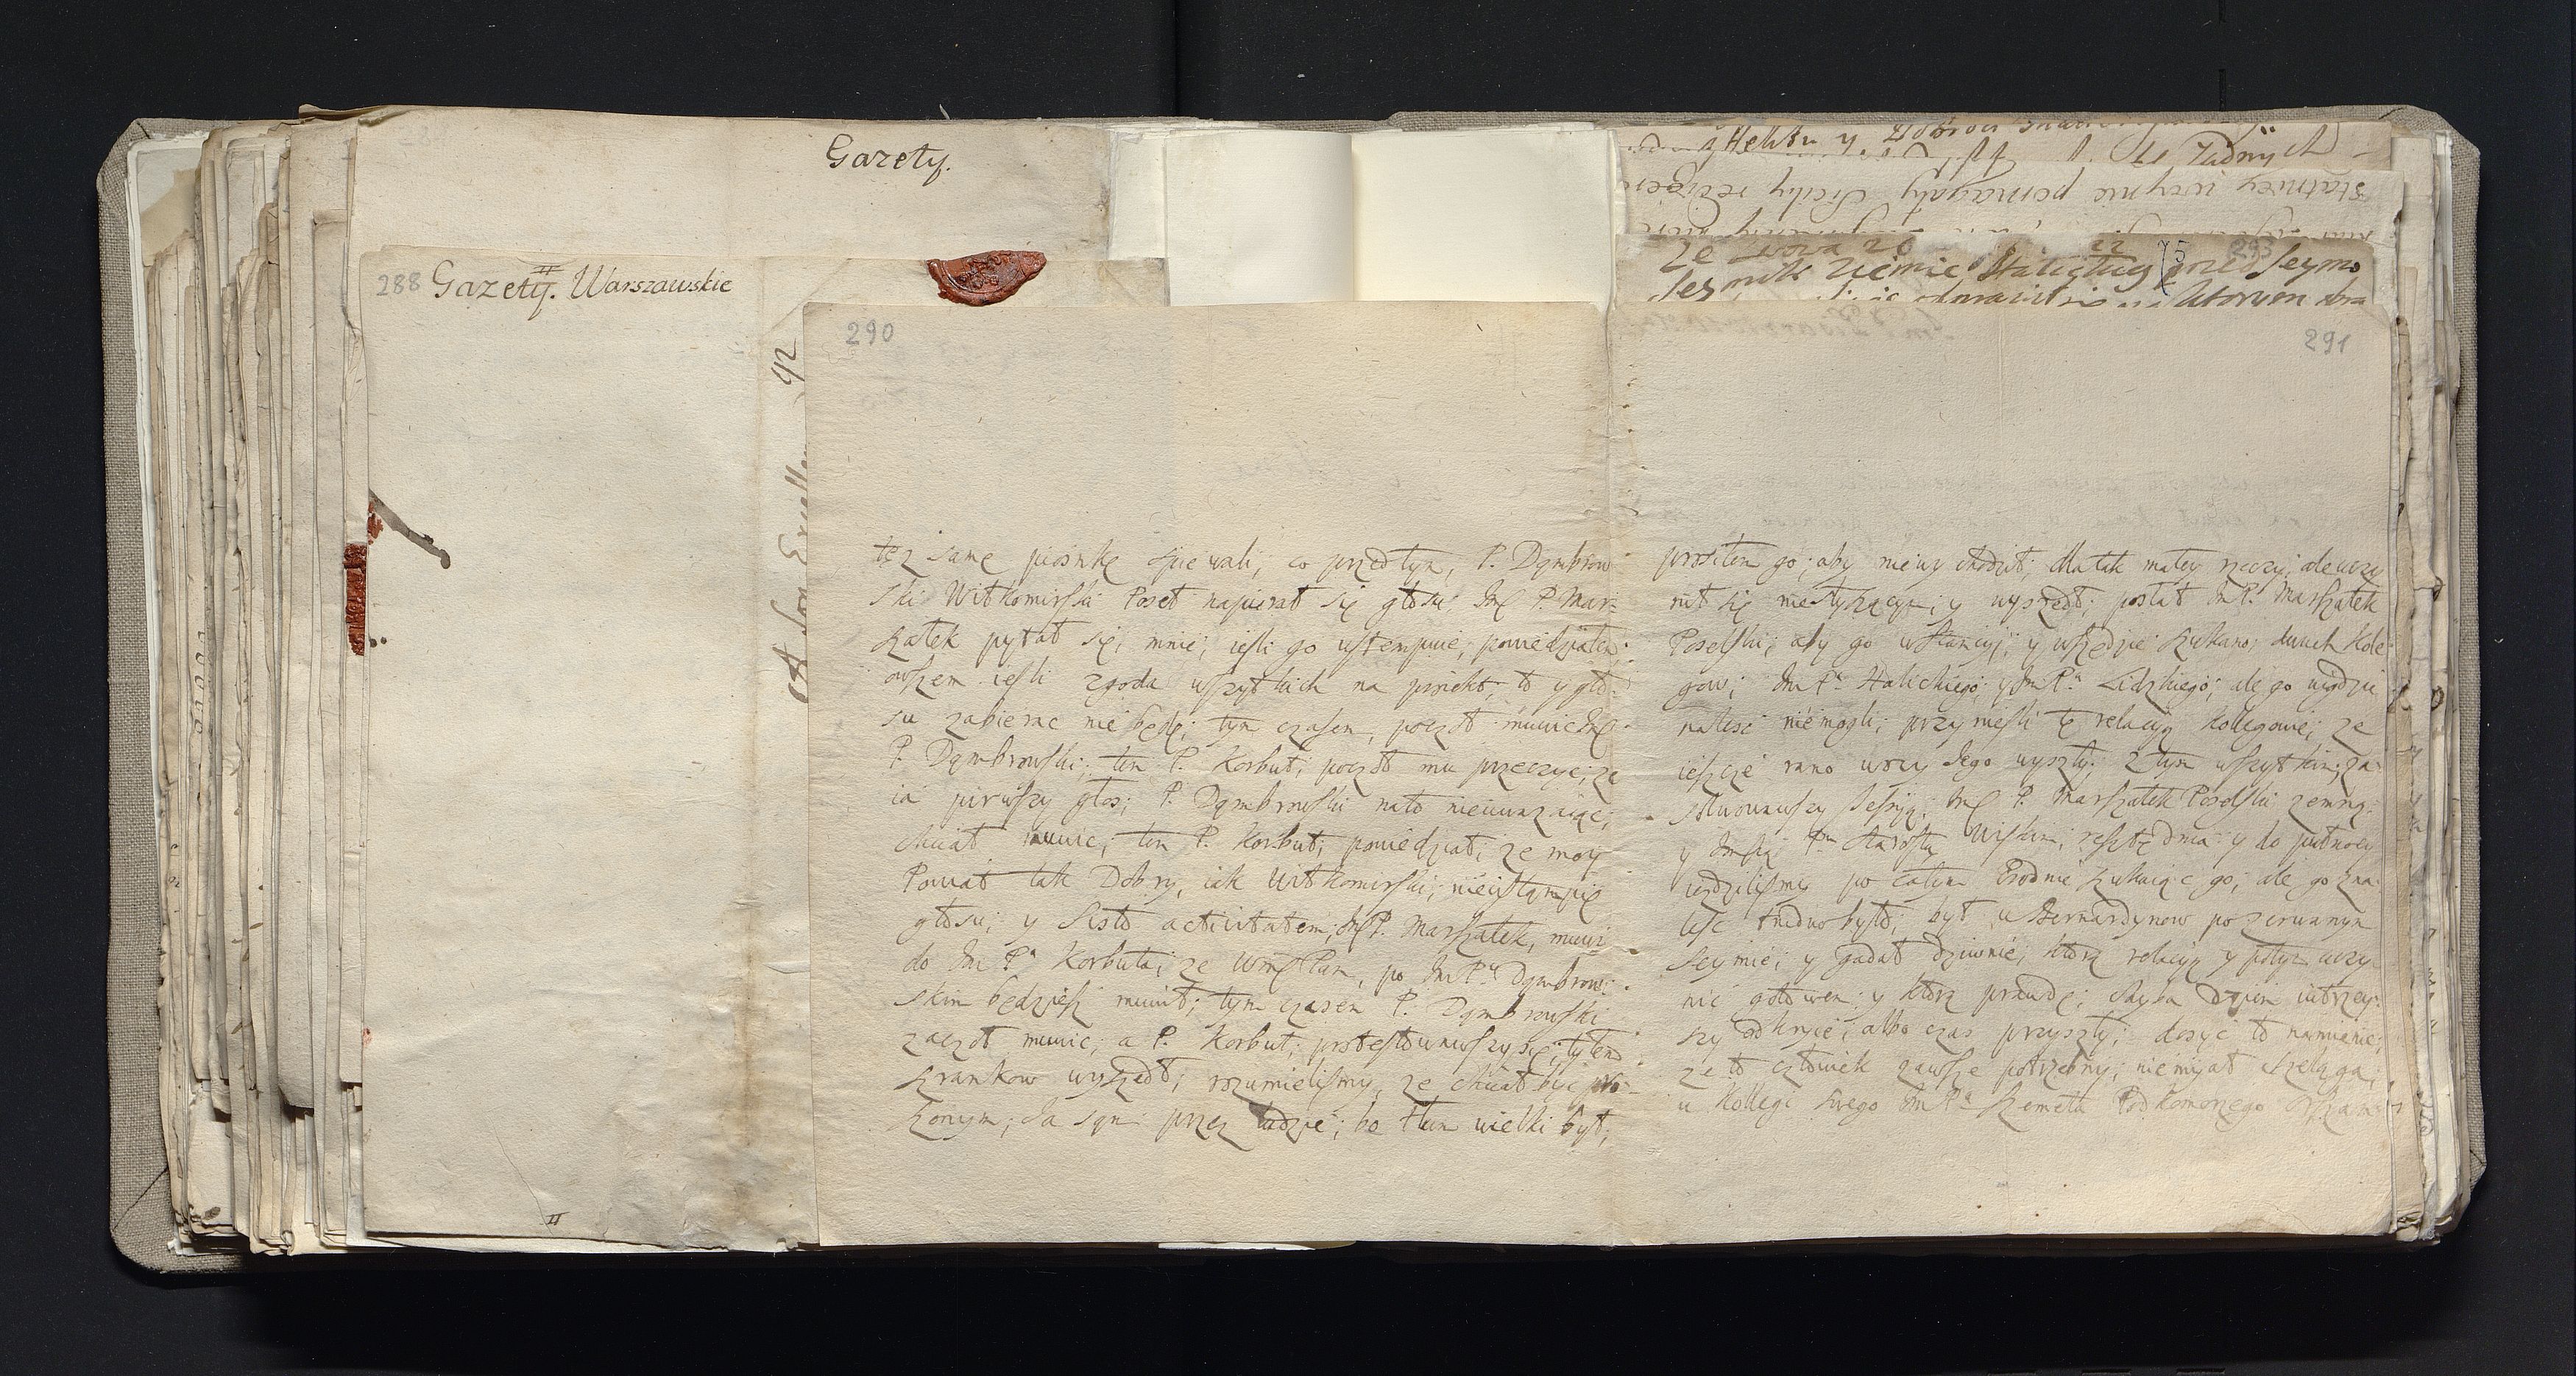 Gazety.
288 Gazety. Warszawskie
II
A Son Excelle
290
też samę piosnkę spiewali, co przedtym, P. Dąmbrow
ski Wiłkomirski Poseł napierał się głosu; Jmć P. Mar-
szałek pytał się, mnie; iesli go ustempuie, powiedziałem
owszem iesli zgoda wszytkich na proiekt, to y gło-
su zabierac nie będę; tym czasem, począł muwić Jmć
P. Dąmbrowski; ten P. Korbut, począł mu przeczyc; ze
ia pirwszy głos; P. Dąmbrowski nato nieuwazaiąc;
chciał muwic, ten P. Korbut; powiedział; ze moy
Powiat tak Dobry, iak Wiłkomirski; nieustąmpię
głosu; y Sisto activitatem; Jmć P. Marszałek, muwi
do Jm Pa Korbuta; ze Wmć Pan, po Jm Pu Dąmbrow-
skim będziesz muwił; tym czasem P. Dąmbrowski
zaczął muwic; a P. Korbut; protestowawszy się; tyłem
szrankow wyszedł; rozumielismy, ze chciał być pro-
szonym; Ja sąm przez ludzie; bo tłum wielki był;
Ze Lwowa 20 22
Seymik Ziemie Halickiey prze Seymo
75
293
291
prosiłem go; aby niewychodził; dla tak małey rzeczy; ale uczy
nił się niesłyszącym; y wyszedł; posłał Jm P. Marszałek
Poselski; aby go w stancyi; y wszędzie szukano; dwuch Kole
gow; Jm Pa Halickiego; y Jm Pa Lidzkiego; ale go nigdzie
nalesc niemogli; przyniesli tę relacyą Kollegowie; ze
ieszcze rano rzeczy Jego wyszły; z tym wszytkim; za-
solwowawszy Sessyą; Jmć P. Marszałek Poselski zemną;
y Jmścią Pm Starostą Wiskim; resztę dnia y do pułnocy
iezdzilismy po całym Grodnie szukaiąc go; ale go zna
lesc trudno było; był u Bernardynow po zerwanym
Seymie; y gadał dziwnie; ktorą relacyą y potym uczy-
nić gotowem; y ktorą prawdę; chyba dzien iutrzey-
szy odkryie; albo czas przyszły; dosyc to namienic;
ze to człowiek zawsze potrzebny; niemiał szeląga;
u Kollegi swego Jm Pa Szemeta Podkomorzego